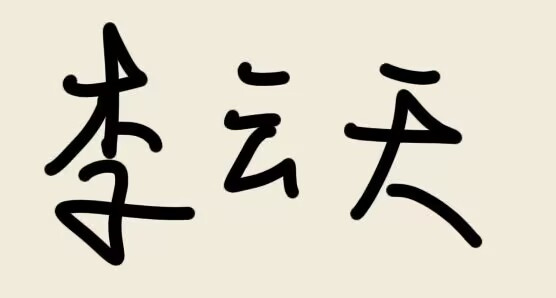 李云天